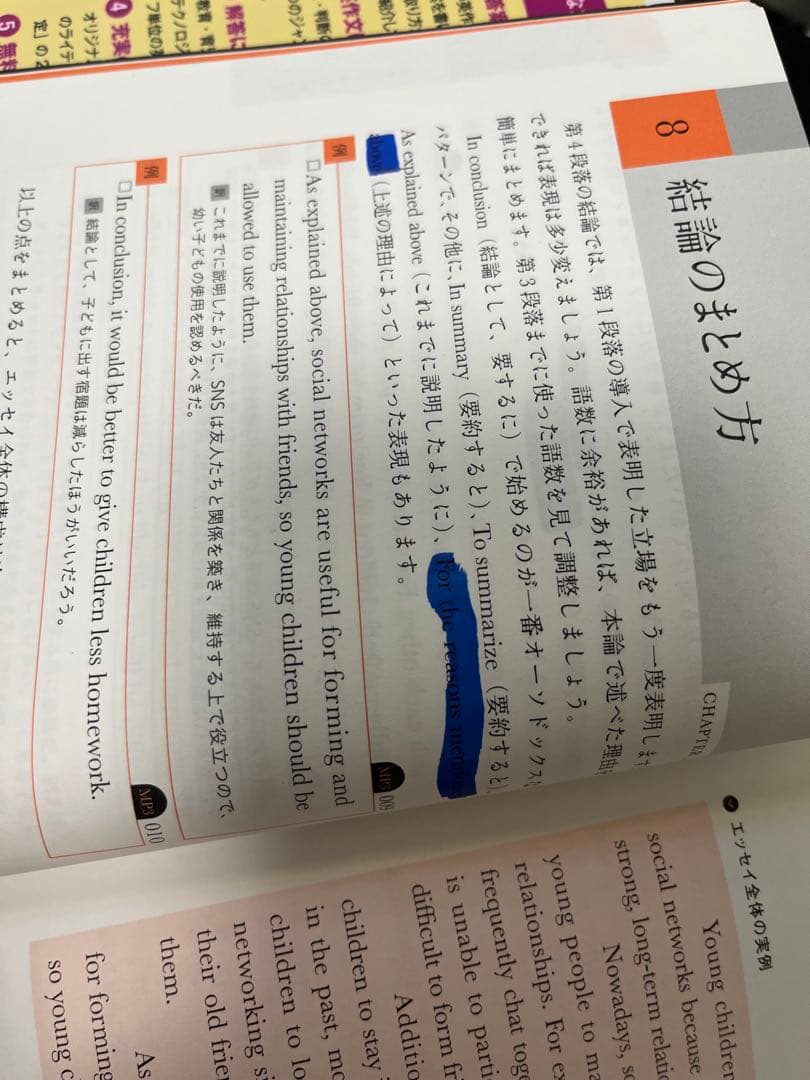 8
結論のまとめ方
CHAPTER
第4段落の結論では、第1段落の導入で表明した立場をもう一度表明しま
できれば表現は多少変えましょう。語数に余裕があれば、本論で述べた理由
簡単にまとめます。第3段落までに使った語数を見て調整しましょう。
In conclusion（結論として、要するに）で始めるのが一番オーソドックス
パターンで、その他に、In summary（要約すると）、To summarize（要約すると）、
As explained above（これまでに説明したように）、For the reasons mentio
above（上述の理由によって）といった表現もあります。
例
MP3 009
□As explained above, social networks are useful for forming and
maintaining relationships with friends, so young children should be
allowed to use them.
訳 これまでに説明したように、SNSは友人たちと関係を築き、維持する上で役立つので、
幼い子どもの使用を認めるべきだ。
例
MP3 010
□In conclusion, it would be better to give children less homework.
訳 結論として、子どもに出す宿題は減らしたほうがいいだろう。
以上の点をまとめると、エッセイ全体の構成は
エッセイ全体の実例
Young children
social networks because
strong, long-term relati
Nowadays, so
young people to ma
relationships. For ex
frequently chat toge
is unable to parti
difficult to form fr
Additio
children to stay
in the past, mo
children to lo
networking si
their old frie
them.
As
for forming
so young c
解答に
教育・育
テクノロジ
フ単位の
4 充実
オリジナ
のライテ
定」の2
5 無料